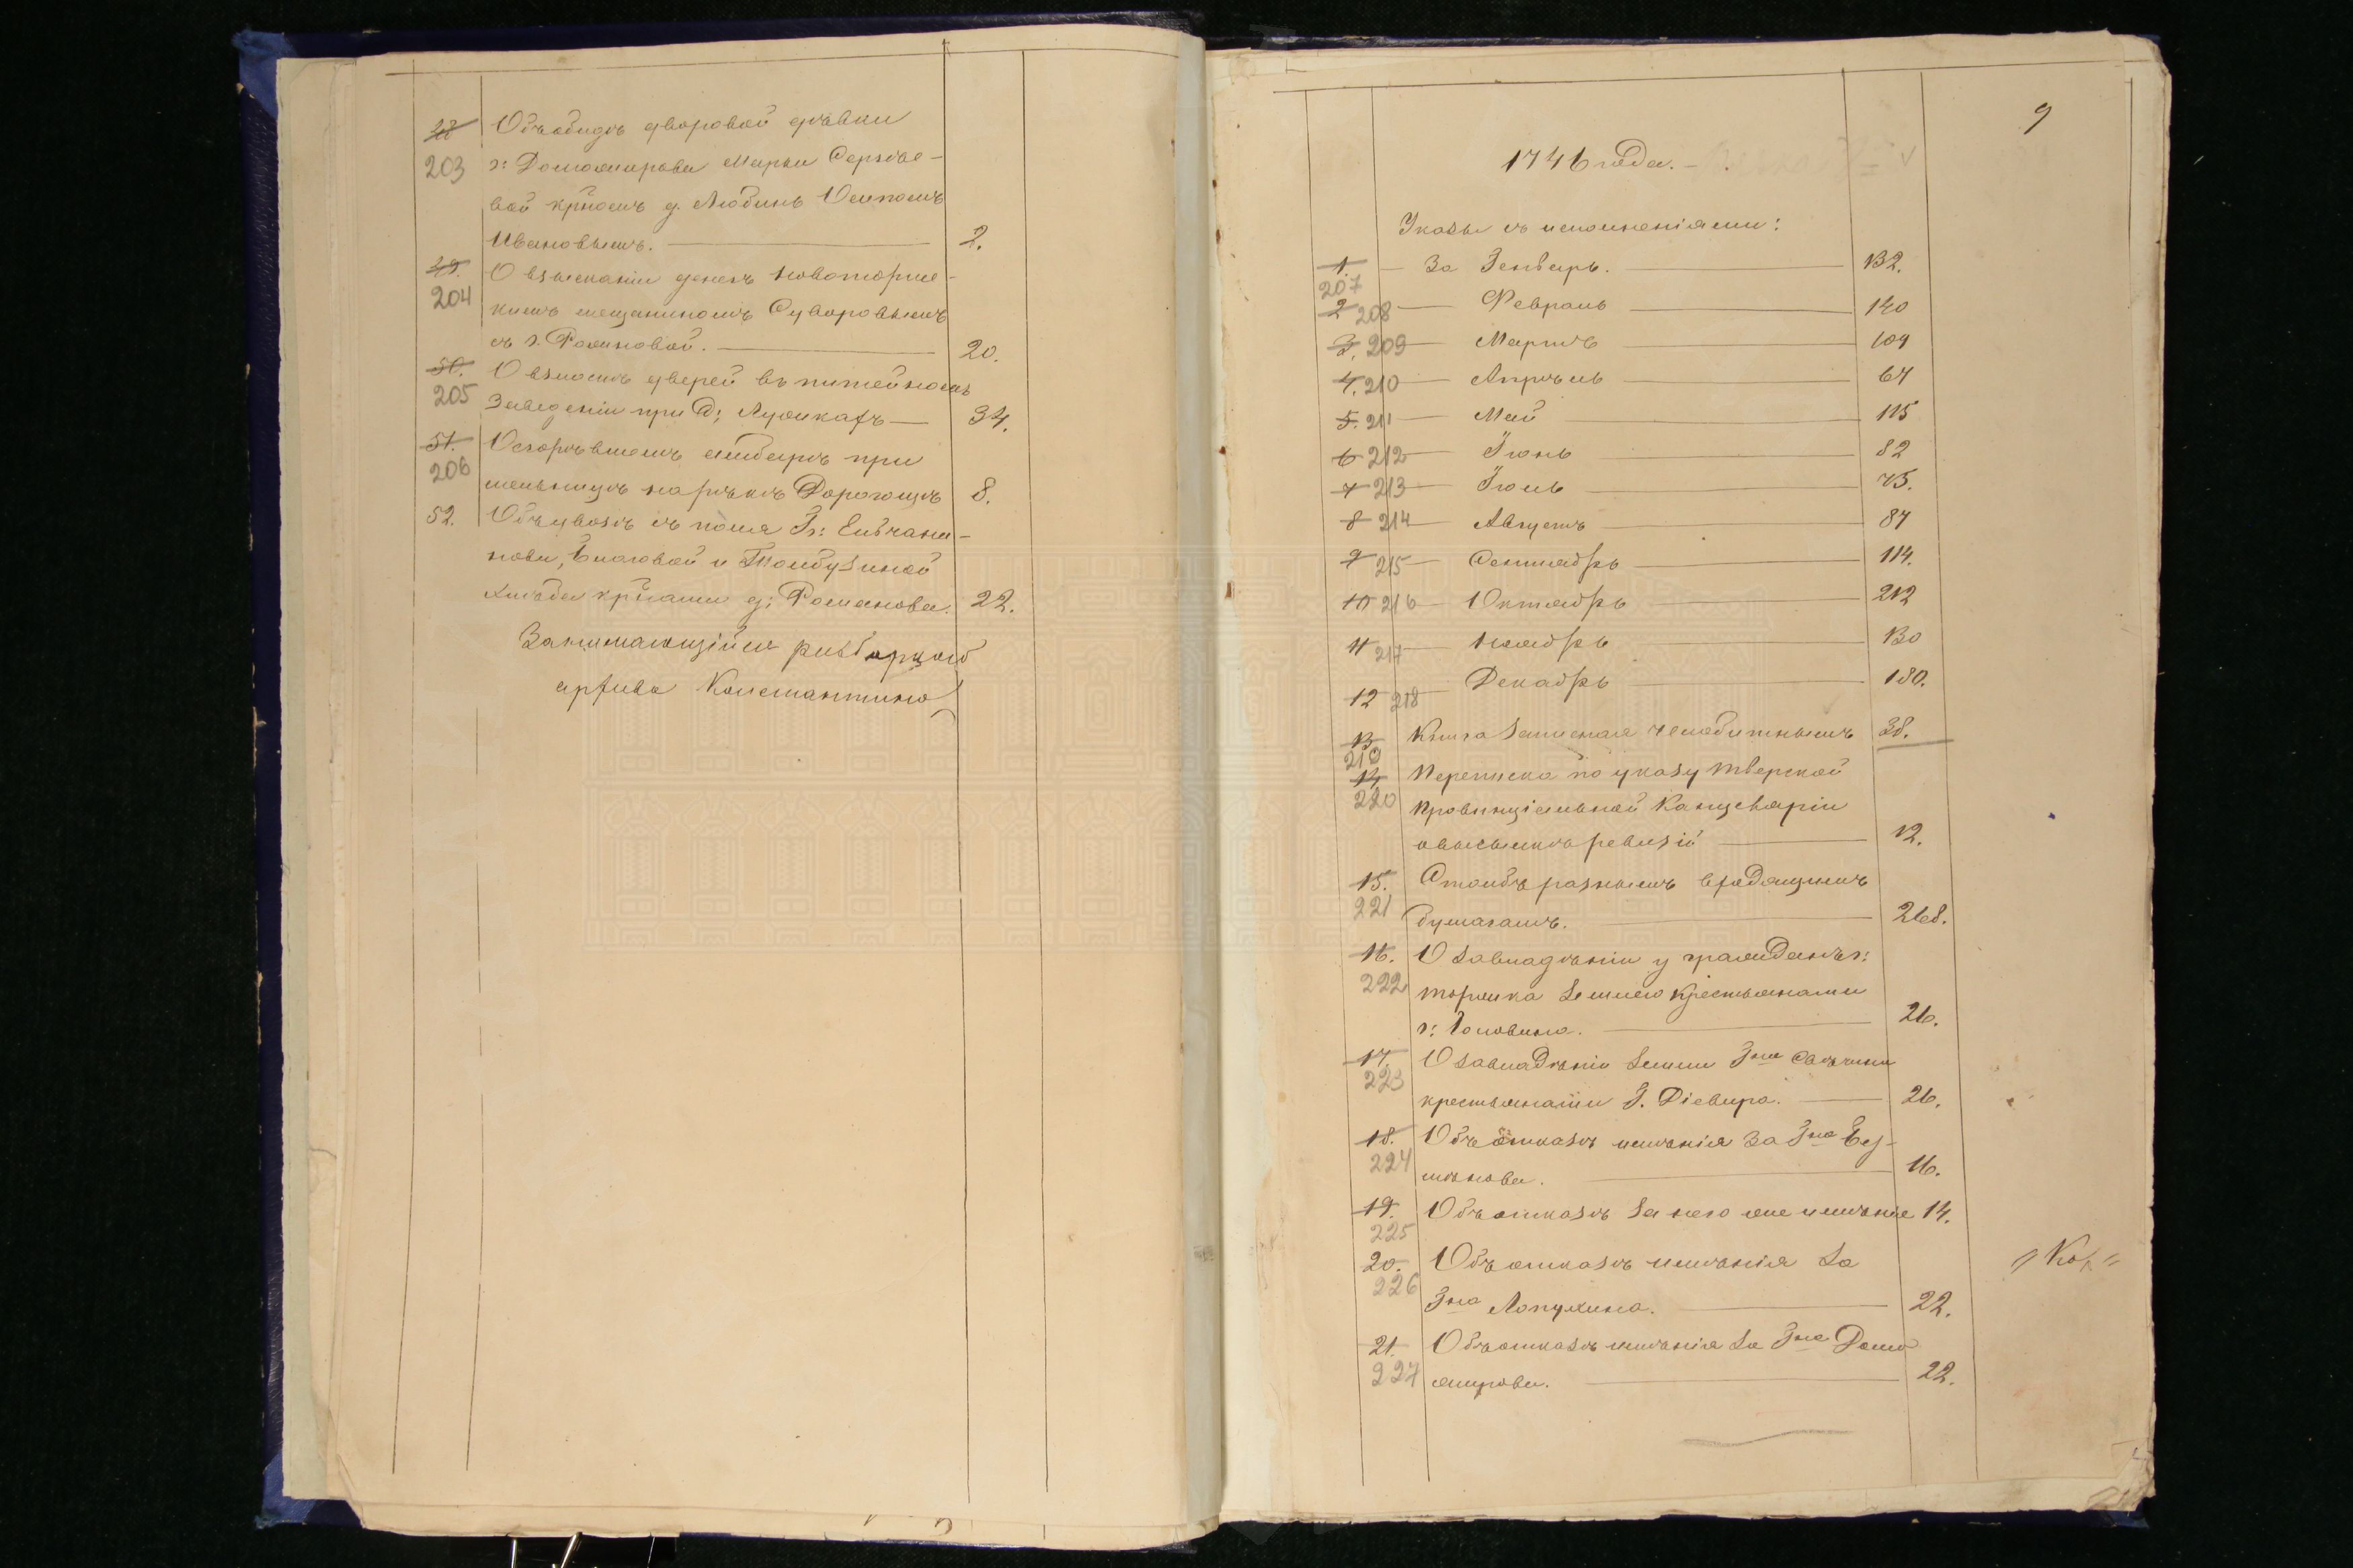 48 Объ обидѣ дворовой дѣвки
203 г: Доможирова Марьи Сергѣе-
вой крномъ д. Любинь Осипомъ
Ивановымъ. 2.
49. О взысканіи денегъ новоторже-
204 кимъ мещаниномъ Суворовымъ
съ г. Фоминовой. 20.
50. О взломѣ дверей въ питейномъ
205 Заведеніи при д; Лужкахъ 34.
51. О сгорѣвшемъ амбарѣ при
206 мельницѣ на рѣкѣ Дорогощѣ 8.
52. Объ увозѣ съ поля Гг:
новой, и
хлѣба крнами д; Романова. 22.
Занимающійся разборкой
архива Константино
9
1746 года.
Указы съ исполненіями:
1. За Генварь. 132.
207
2 208 Февраль 140
3. 209 Мартъ 109
4. 210 Апрѣль 67
5. 211 Май 115
6 212 Іюнь 82
7 213 Іюль 75.
8 214 Августъ 87
9 215 Сентябрь 114.
10 216 Октябрь 212
11 217 Ноябрь 130
12 218 Декабрь 180.
13 Книга записная челобитнымъ 38.
219
14 Переписка по указу Тверской
220 провинціальной Канцеляріи
о высылкѣ ревизіи 12.
15. Столбъ разнымъ входящимъ
221 бумагамъ. 268.
16. О завладѣніи у гражданъ г:
222 торжка землею крестьянами
г: Головина. 26.
17. О завладѣніи земли Гна Свѣчина
223 крестьянами Г. Дісвира. 26.
18. Объ отказѣ имѣнія за Гна
224 16.
19. Объ отказѣ за него же имѣнія 14.
225
20. Объ отказѣ имѣнія за
226 Гна Лопухина. 22.
21. Объ отказѣ имѣнія за Гна Домо
227 жирова. 22.